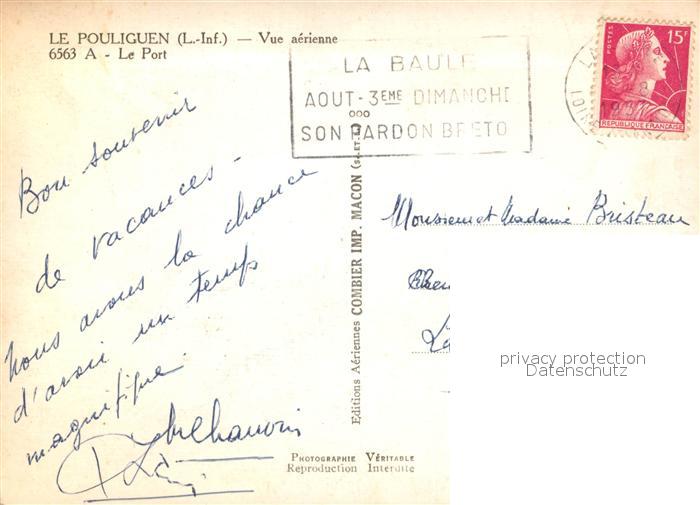 LE POULIGUEN (L.-Inf.) — Vue aérienne
6563 A - Le Port
LA BAULE
AOUT - 3EME DIMANCHE
SON PARDON BRETO
POSTES
15F
REPUBLIQUE FRANÇAISE
Bon souvenir
de vacances -
Nous avons la chance
d'avoir un temps
magnifique.
Editions Aériennes COMBIER IMP. MACON (S.-ET-L.)
Monsieur et Madame Bristeau
privacy protection
Datenschutz
PHOTOGRAPHIE VÉRITABLE
Reproduction Interdite